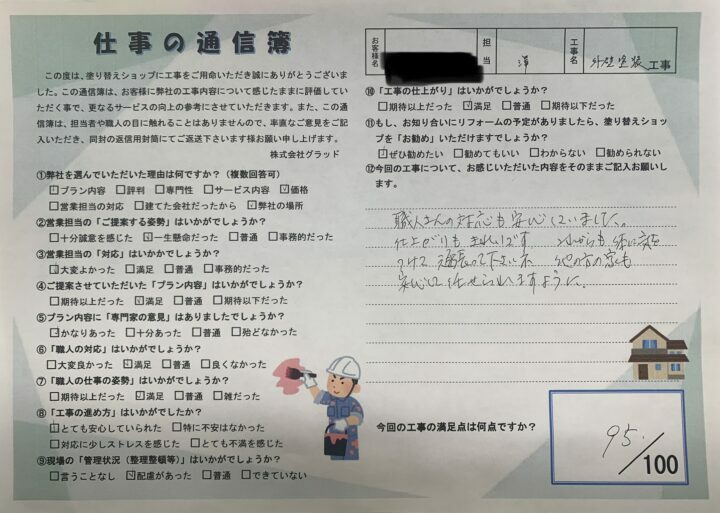 仕事の通信簿
この度は、塗り替えショップに工事をご用命いただき誠にありがとうございま
した。この通信簿は、お客様に弊社の工事内容について感じたままに評価してい
ただく事で、更なるサービスの向上の参考にさせていただきます。また、この通
信簿は、担当者や職人の目に触れることはありませんので、率直なご意見をご記
入いただき、同封の返信用封筒にてご返送下さいます様お願い申し上げます。
株式会社グラッド
①弊社を選んでいただいた理由は何ですか?(複数回答可)
☑プラン内容 □評判 □専門性 □サービス内容 ☑価格
□営業担当の対応 □建てた会社だったから ☑弊社の場所
②営業担当の「ご提案する姿勢」はいかがでしょうか?
□十分誠意を感じた ☑一生懸命だった □普通 □事務的だった
③営業担当の「対応」はいかかでしょうか?
☑大変よかった □満足 □普通 □事務的だった
④ご提案させていただいた「プラン内容」はいかがでしょうか?
□期待以上だった ☑満足 □普通 □期待以下だった
⑤プラン内容に「専門家の意見」はありましたでしょうか?
☑かなりあった □十分あった □普通 □殆どなかった
⑥「職人の対応」はいかがでしょうか?
□大変良かった ☑満足 □普通 □良くなかった
⑦「職人の仕事の姿勢」はいかがでしょうか?
□期待以上だった ☑満足 □普通 □雑だった
⑧「工事の進め方」はいかがでしたか?
☑とても安心していられた □特に不安はなかった
□対応に少しストレスを感じた □とても不満を感じた
⑨現場の「管理状況(整理整頓等)」はいかがでしょうか?
□言うことなし ☑配慮があった □普通 □できていない
お客様名 担当 工事名 外壁塗装工事
⑩「工事の仕上がり」はいかがでしょうか?
□期待以上だった ☑満足 □普通 □期待以下だった
⑪もし、お知り合いにリフォームの予定がありましたら、塗り替えショッ
プを「お勧め」いただけますでしょうか?
☑ぜひ勧めたい □勧めてもいい □わからない □勧められない
⑫今回の工事について、お感じいただいた内容をそのままご記入お願いし
ます。
職人さんの対応も安心していました。
仕上がりもきれいです これからも体に気を
つけて 頑張って下さいネ 他の方の家も
安心して任せられますように。
今回の工事の満足点は何点ですか?
95/100